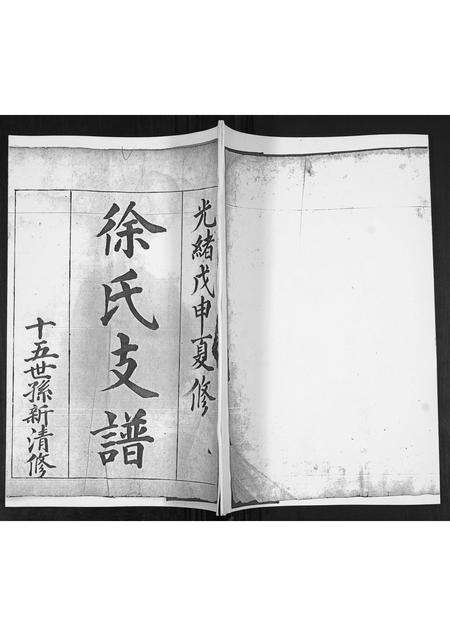 光緒戊申夏修
徐氏支譜
十五世孫新清修